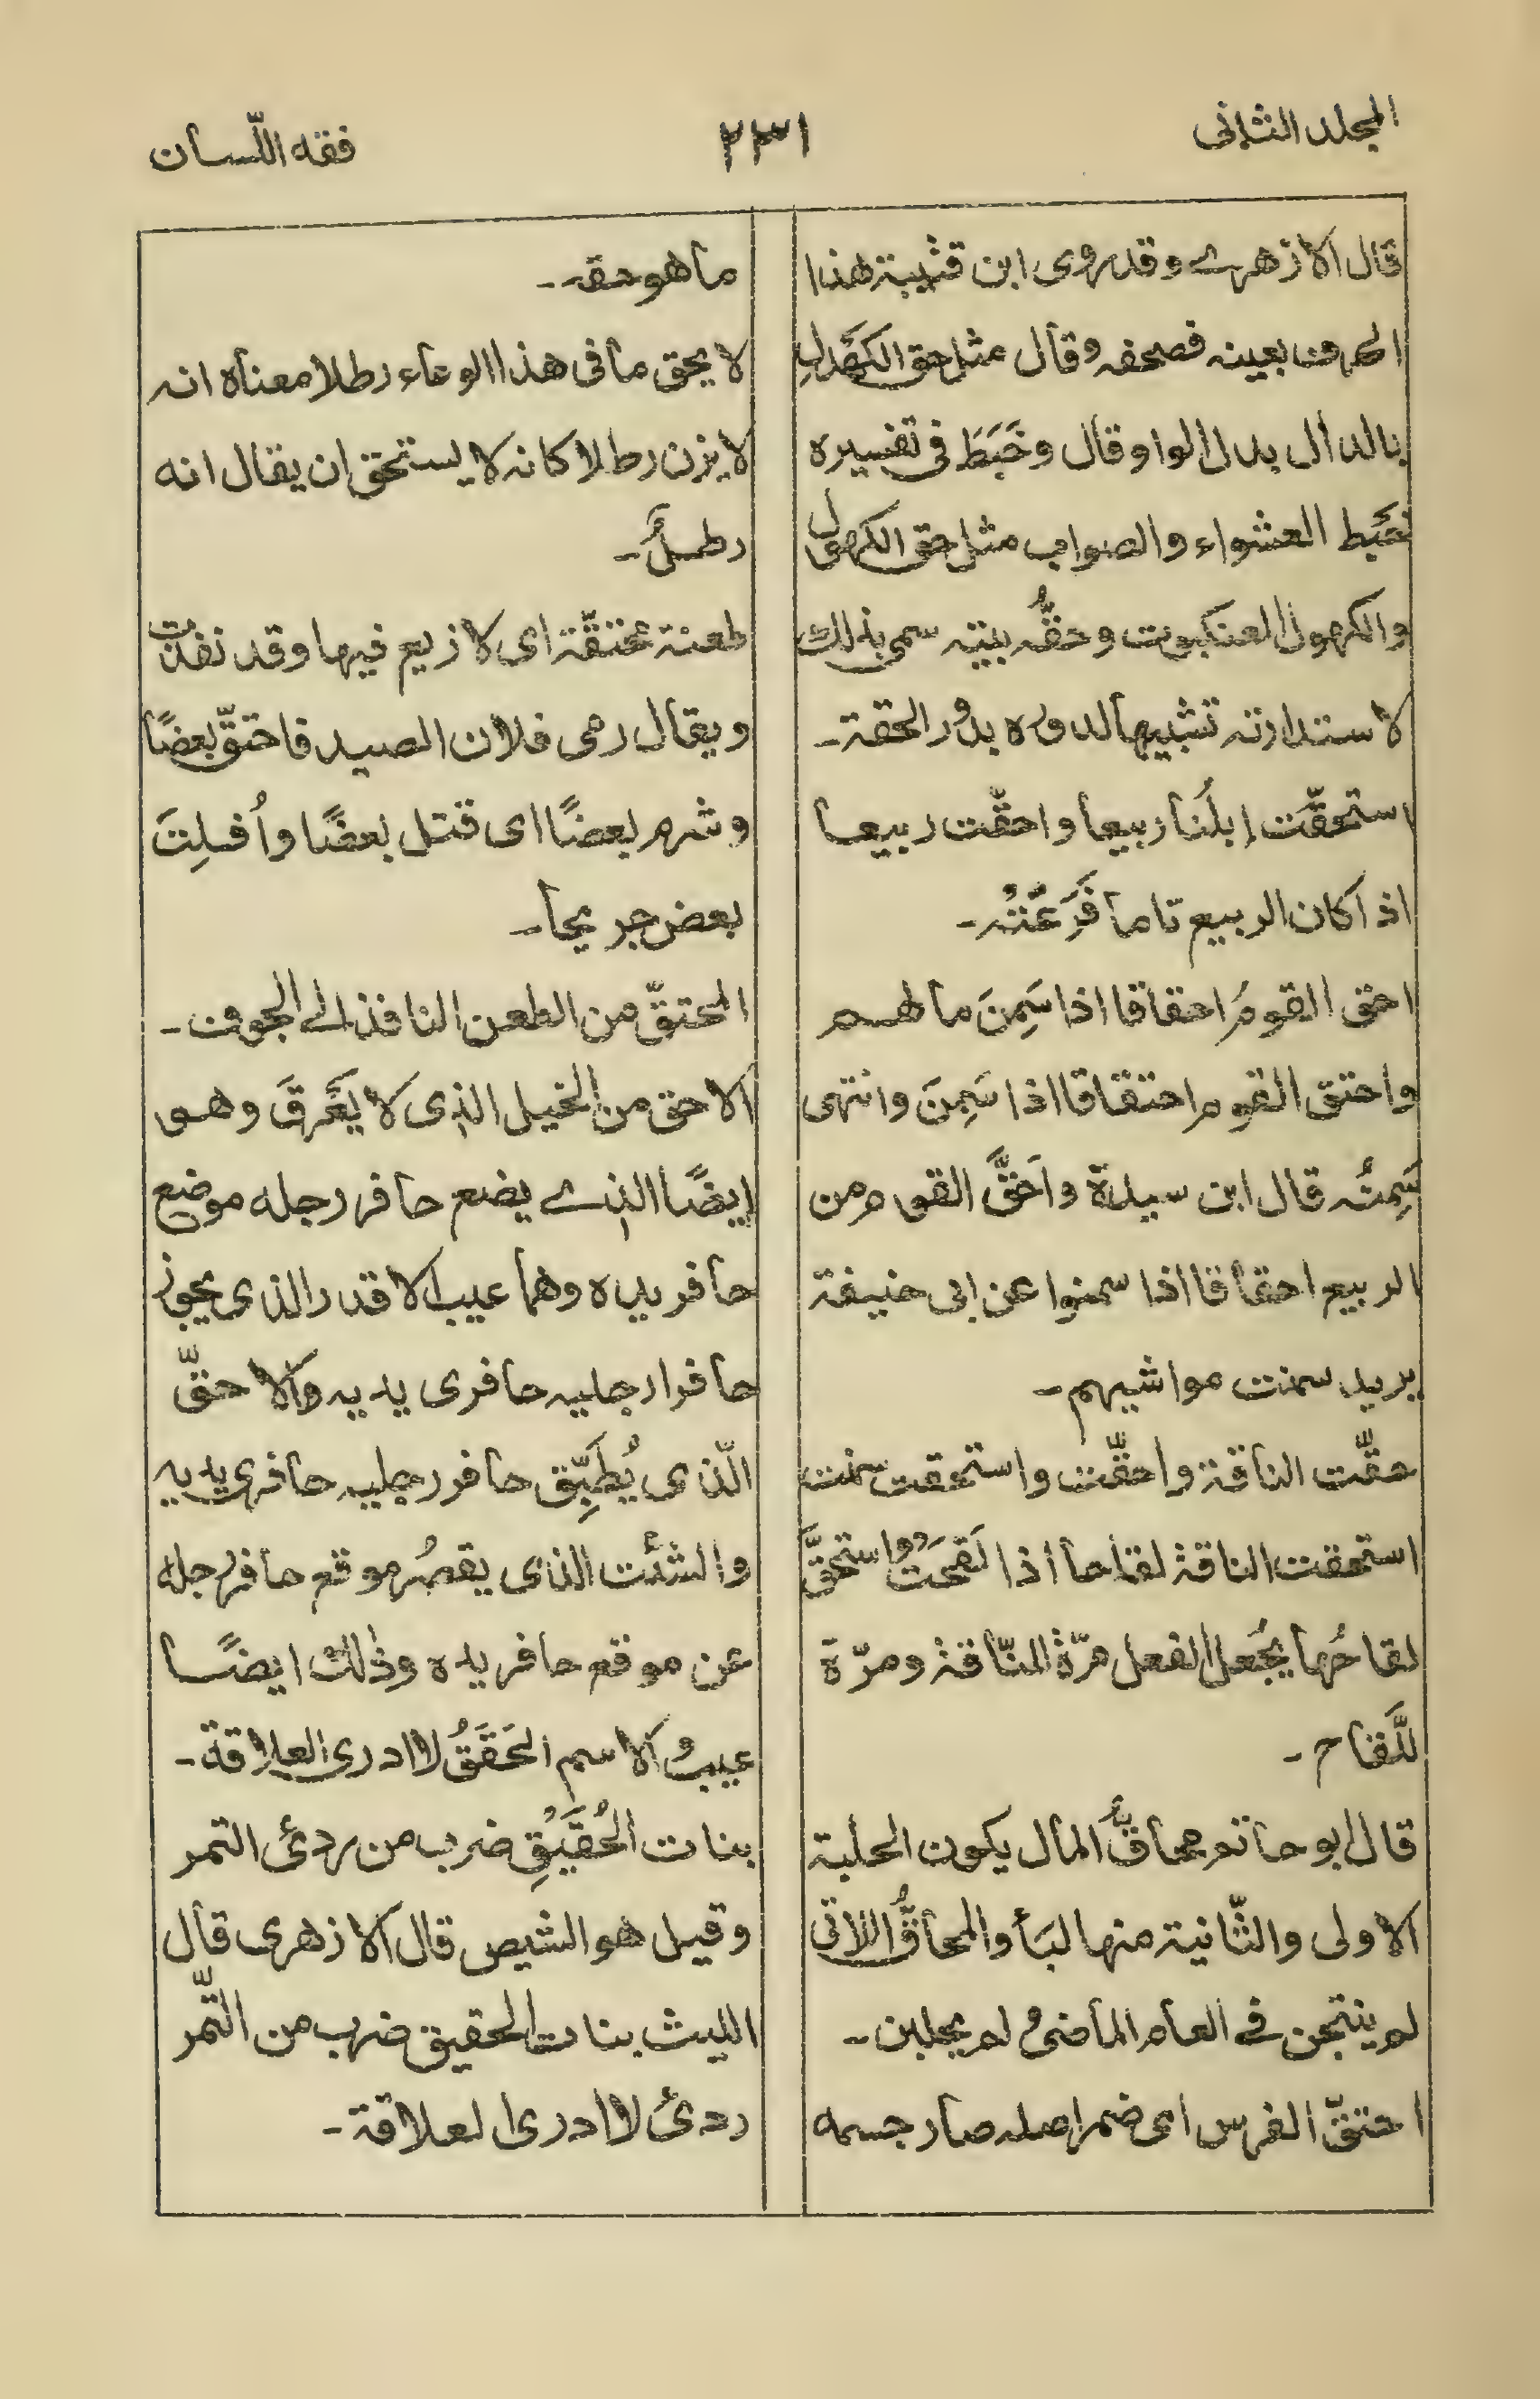 المجلد الثانی
۲۳۱
فقه اللّسان
قال الازهرے وقد روی ابن قتیبة هذا
الحرف بعینه فصحفه وقال مثل حق الکَهْدَلِ
بالدال بدل الواو قال وخَبَطَ فی تفسیره
خَبط العشواء والصواب مثل حق الکهول
والکهول العنکبوت وحقُّه بیته سمی بذلك
لاستدارته تشبیها لدوره بدور الحقة۔
استحقّت إبلُنا ربیعا واحقّت ربیعا
اذا کان الربیع تاما فَرَعَتْهُ۔
احق القومُ احقاقا اذا سَمِنَ مالهم
واحتق القوم احتقاقا اذا سَمِنَ وانتهی
سِمنُه قال ابن سیدة واَحَقَّ القوم من
الربیع احقاقا اذا سمنوا عن ابی حنیفة
یرید سمنت مواشیهم۔
حقّت الناقة واحقّت واستحقت سمنت
استحقت الناقة لقاحا اذا لَقِحَتْ واستحقَّ
لقاحُها یُجعل الفعل مرّةً للنّاقة ومرّة
للَّقاح۔
قال ابو حاتم محاقُّ المال یکون الحلبة
الاولی والثّانیة منها لبَأ والمحاقُّ اللاتی
لم ینتجن فی العام الماضی ولم یحلبن۔
احتقّ الفرس ای ضمر اصله صار جسمه
ما هو حقه۔
لا یحق ما فی هذا الوعاء رطلا معناه انه
لا یزن رطلا کانه لا یستحق ان یقال انه
رطلٌ۔
طعنة محتقّة ای لا زیع فیها وقد نفذت
ویقال رمی فلان الصید فاحتقّ بعضًا
وشرم بعضًا ای قتل بعضًا واُفلِتَ
بعض جریحا۔
المحتقّ من الطعن النافذ الے الجوف۔
الاحق من الخیل الذی لا یَعْرَقَ وهو
ایضًا الذے یضع حافر رجله موضع
حافر یده وهما عیب الاقدر الذی یجوز
حافرا رجلیه حافری یدیه والاحقّ
الّذی یُطَبِّق حافر رجلیه حافری یدیه
والشئت الذی یقصُر موقع حافر رجله
عن موقع حافر یده وذٰلك ایضًا
عیب والاسم الحَقَقُ لا ادری العلاقة۔
بنات الحُقَیْقِ ضرب من ردئ التمر
وقیل هو الشیص قال الازهری قال
اللیث بنات الحقیق ضرب من التّمر
ردئ لا ادری العلاقة۔